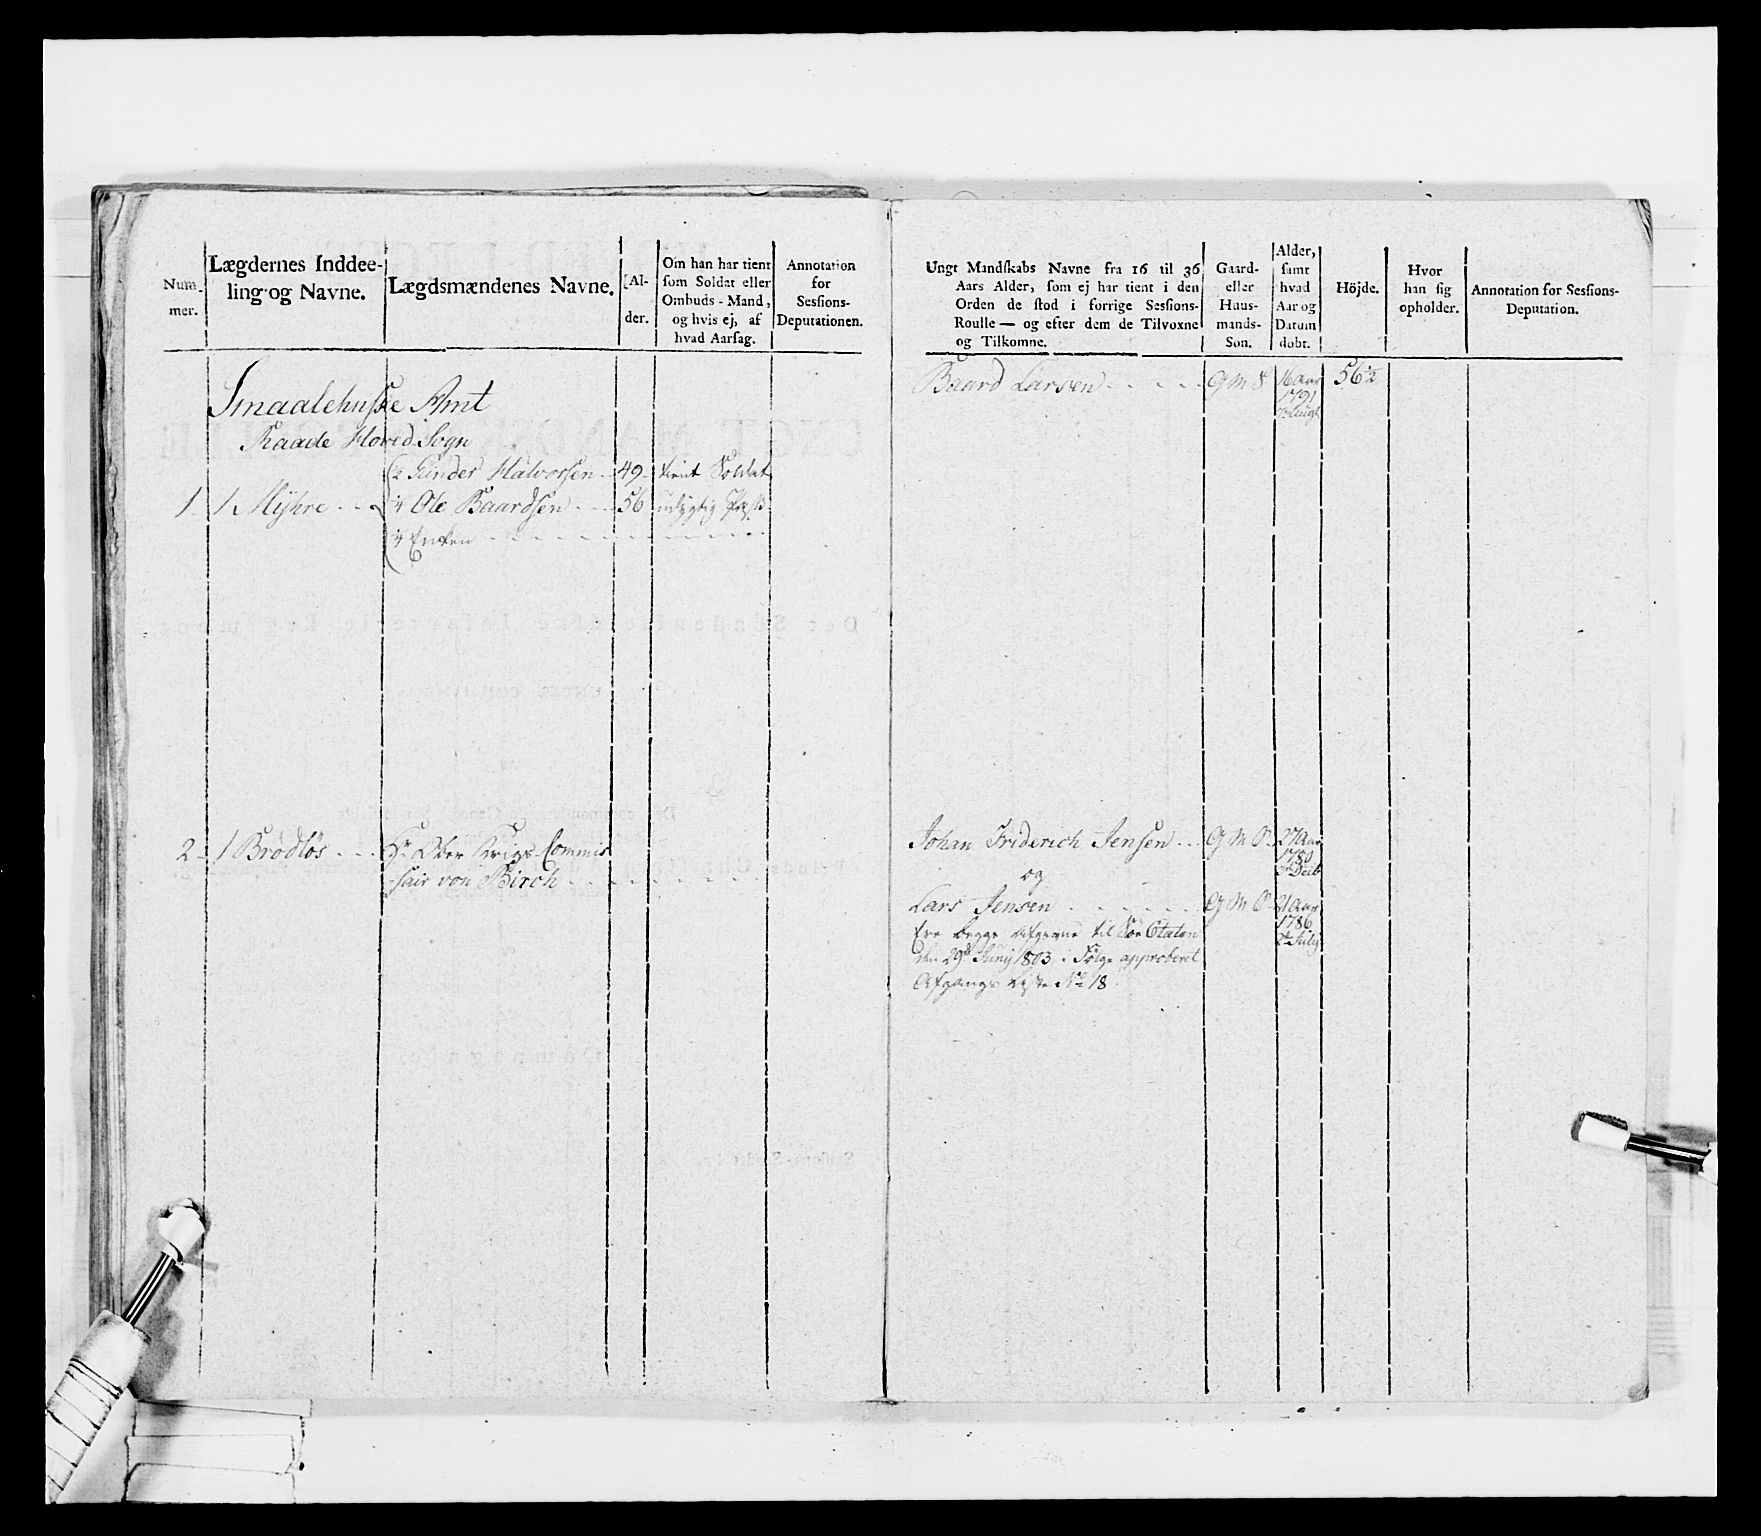 Num-
mer.
Lægdernes Inddee-
ling og Navne.
Lægdsmændenes Navne.
Al-
der.
Om han har tient
som Soldat eller
Ombuds-Mand,
og hvis ej, af
hvad Aarsag.
Annotation
for
Sessions-
Deputationen.
Smaalehnske Amt
Raade Hoved Sogn
1 1 Mÿhre
1/2 Gunder Halvorsen 49 tient Soldat
1/4 Ole Baardsen 56 udygtig
1/4 Enken
2 1 Brödlös Hr Ober Krigs Commis
sair von Birch
Ungt Mandskabs Navne fra 16 til 36
Aars Alder, som ej har tient i den
Orden de stod i forrige Sessions-
Roulle — og efter dem de Tilvoxne
og Tilkomne.
Gaard-
eller
Huus-
mands-
Son.
Alder,
samt
hvad
Aar og
Datum
dobt.
Höjde.
Hvor
han sig
opholder.
Annotation for Sessions-
Deputation.
Baard Larsen G M S 16 Aar 56 1/2
1791
Augt
Johan Friderich Jensen G M S 27 Aar
1780
Decb
og
Lars Jensen G M S 21 Aar
1786
July
Ere begge afgevne til Söe Etaten
den 29de Junij 1803 i Fölge approberet
Afgangs Liste No 18